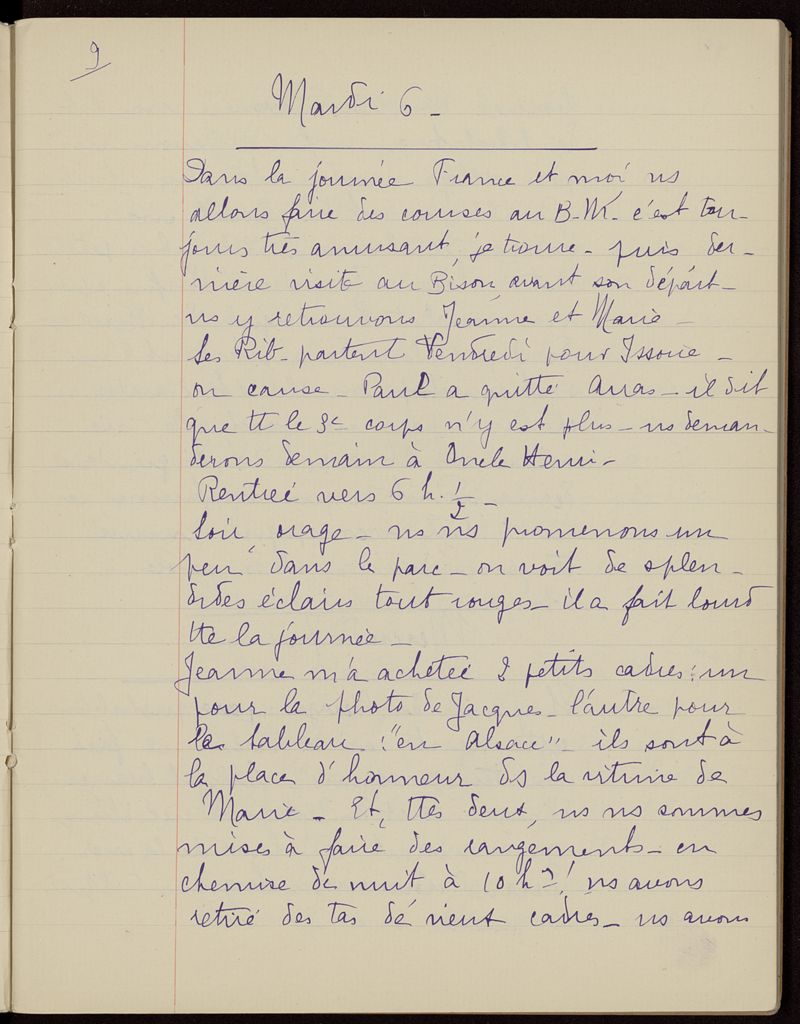 9
Mardi 6 -
Dans la journée France et moi ns
allons faire des courses au B.M. c'est tou-
jours très amusant, je trouve - puis der-
nière visite au Bison avant son départ -
ns y retrouvons Jeanne et Marie -
Les Rib. partent Vendredi pour Issoire -
on cause - Paul a quitté Arras - il dit
que tt le 3e corps n'y est plus - ns deman-
derons demain à Oncle Henri -
Rentrée vers 6 h. 1/2 -
Soir orage - ns ns promenons un
peu dans le parc - on voit de splen-
dides éclairs tout rouges - il a fait lourd
tte la journée -
Jeanne m'a achetée 2 petits cadres : un
pour la photo de Jacques - l'autre pour
le tableau : "en Alsace" - ils sont à
la place d'honneur ds la vitrine de
Marie - Et, ttes deux, ns ns sommes
mises à faire des rangements - en
chemise de nuit à 10 h ! ns avons
retiré des tas de vieux cadres - ns avons